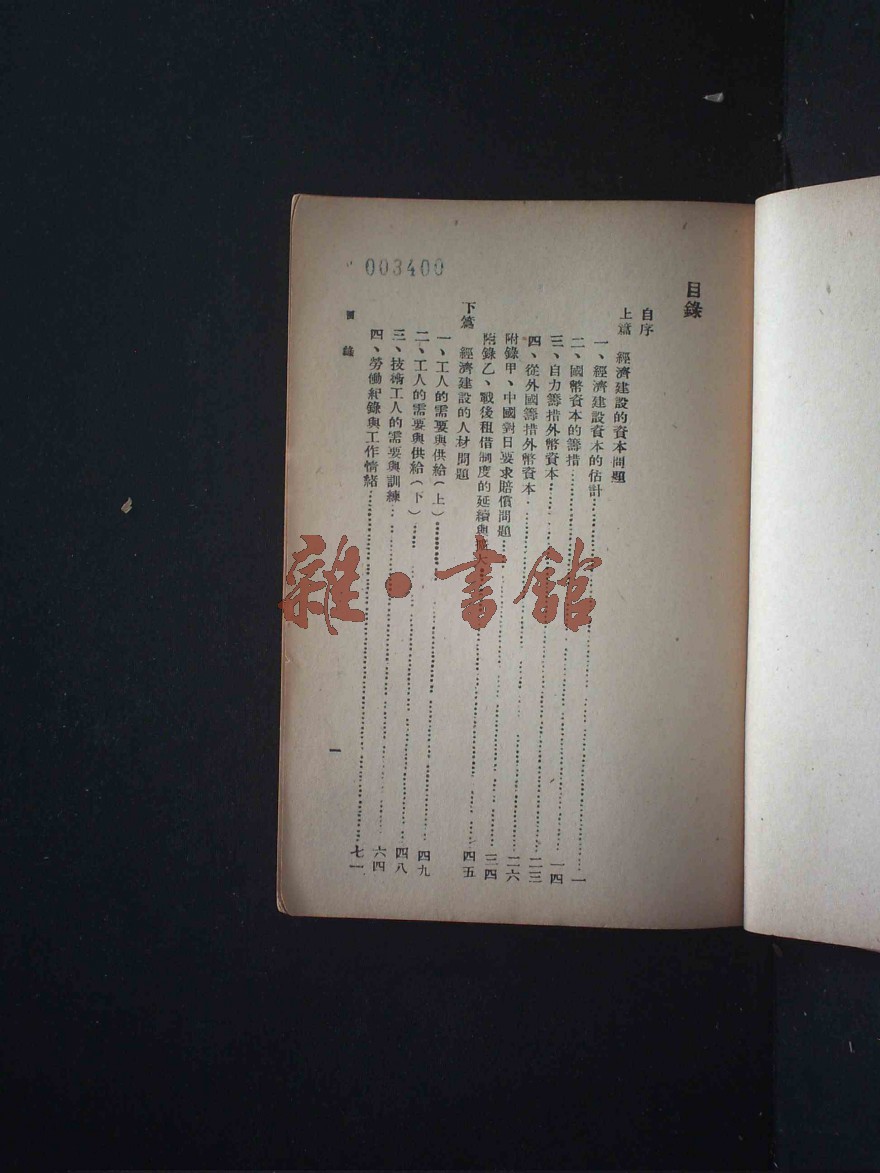 目錄
自序
上篇　經濟建設的資本問題
一、經濟建設資本的估計……一
二、國幣資本的籌措……一四
三、自力籌措外幣資本……二三
四、從外國籌措外幣資本……二六
附錄甲、中國對日要求賠償問題……三四
附錄乙、戰後租借制度的延續與擴大……四五
下篇　經濟建設的人材問題
一、工人的需要與供給(上)……四九
二、工人的需要與供給(下)……四八
三、技術工人的需要與訓練……六四
四、勞働紀錄與工作情緒……七一
目錄
一
003400
雜·書館